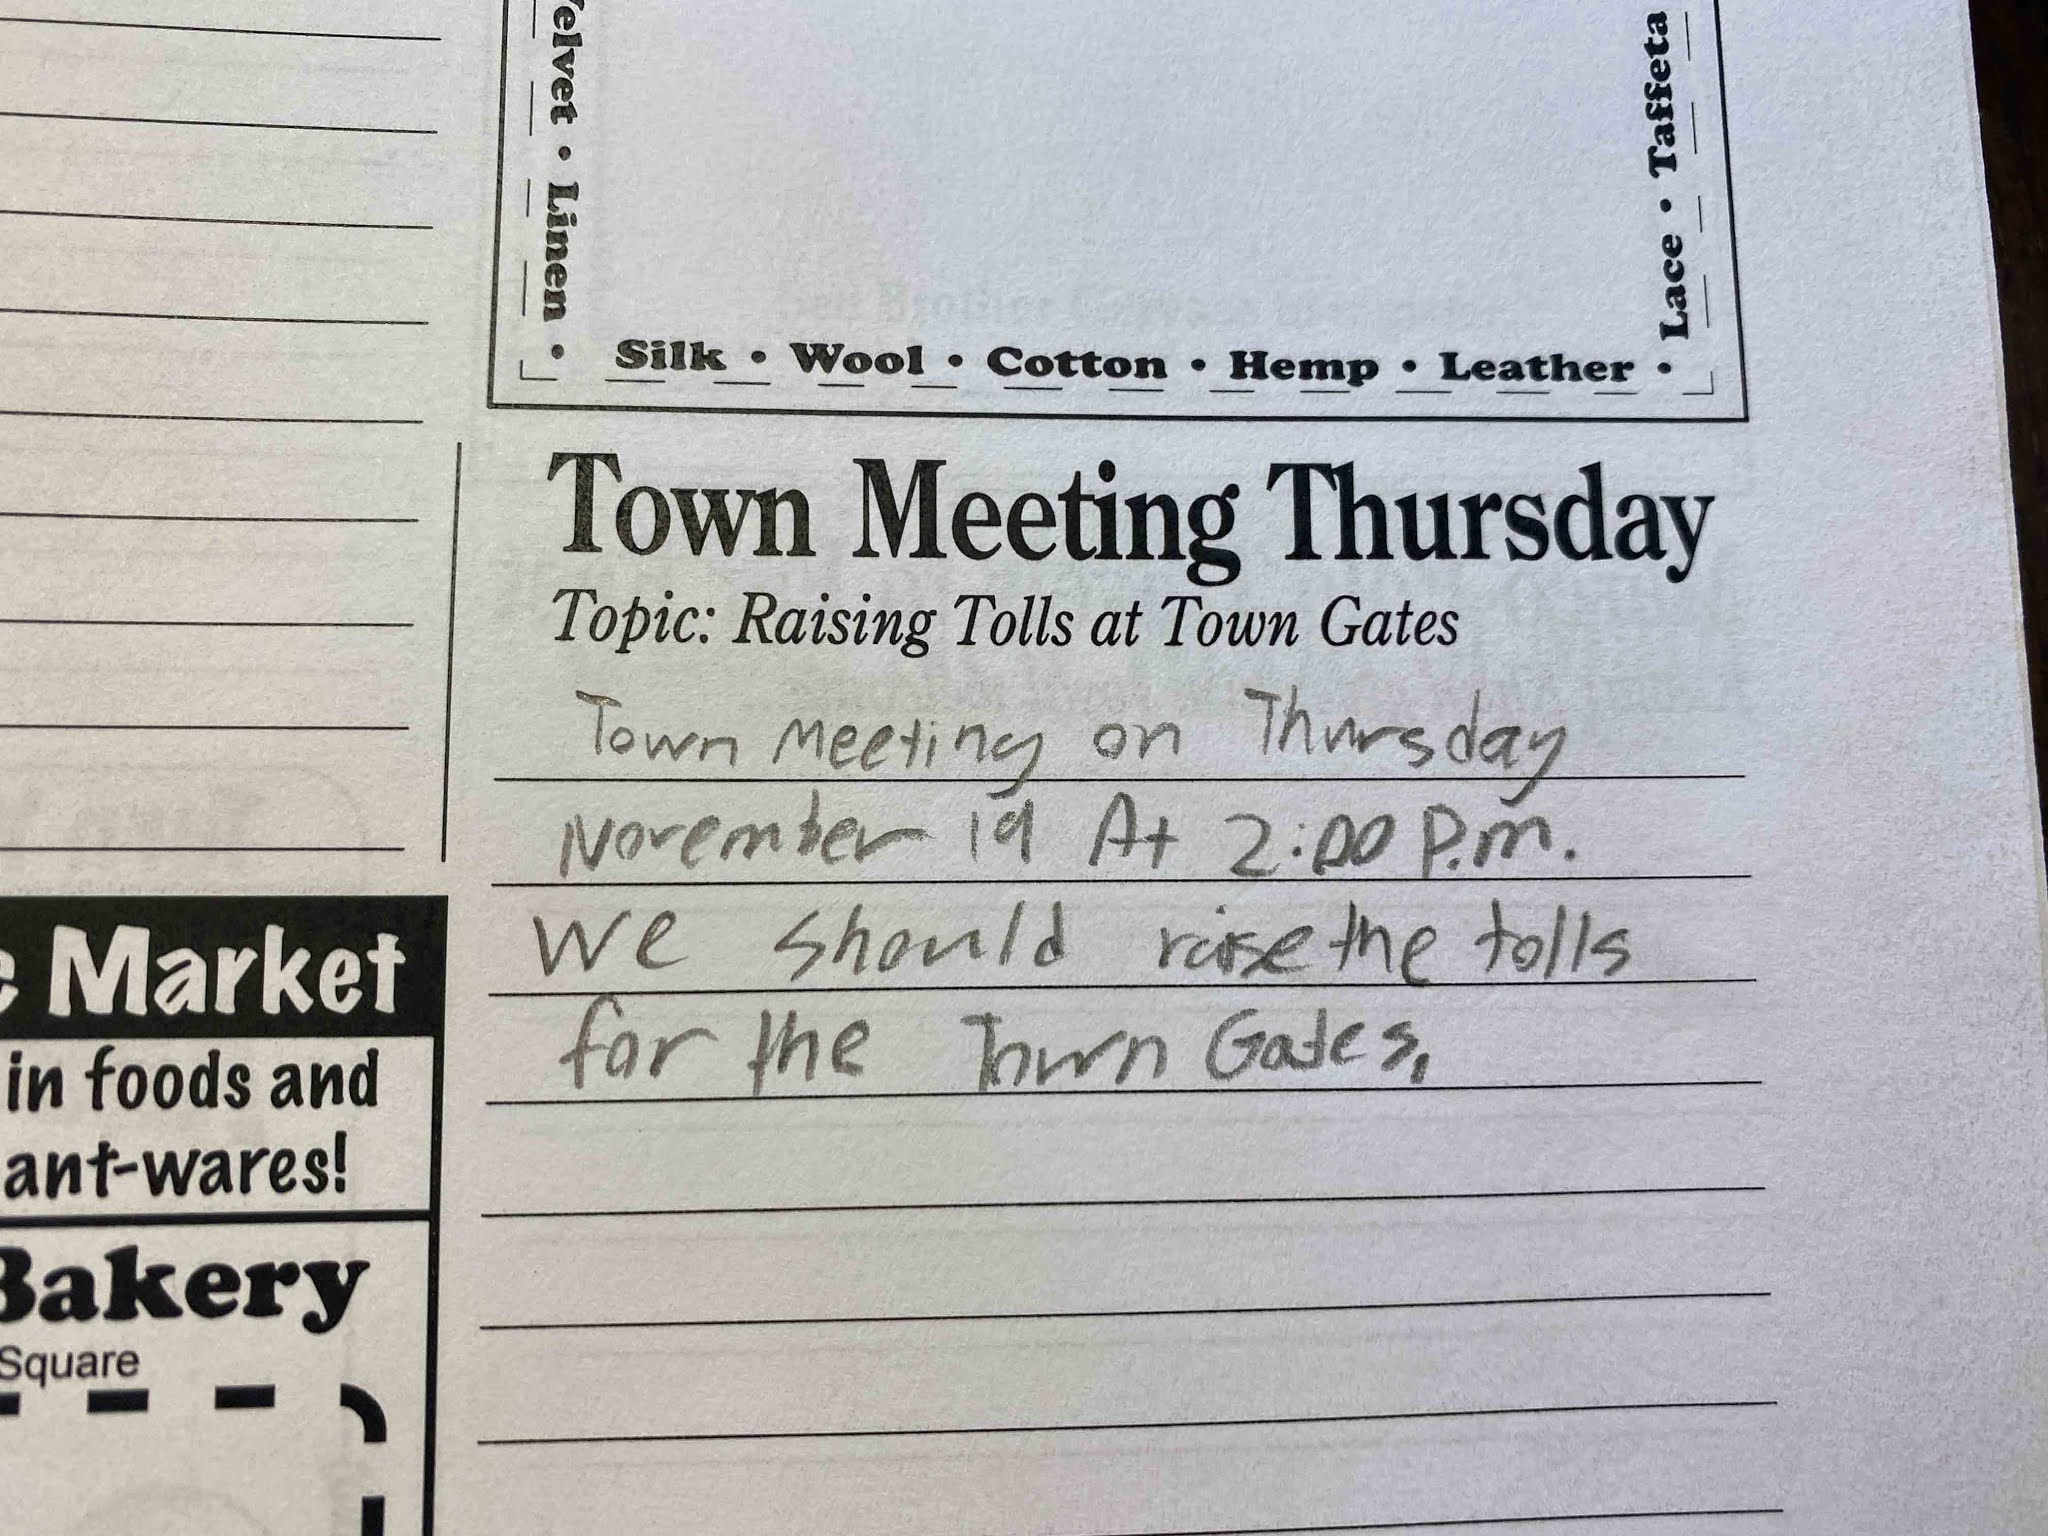 Velvet • Linen •
Silk • Wool • Cotton • Hemp • Leather •
Lace • Taffeta
Town Meeting Thursday
Topic: Raising Tolls at Town Gates
Town Meeting on Thursday
November 19 At 2:00 P.m.
We should raise the tolls
for the Town Gates.
Market
in foods and
ant-wares!
Bakery
Square